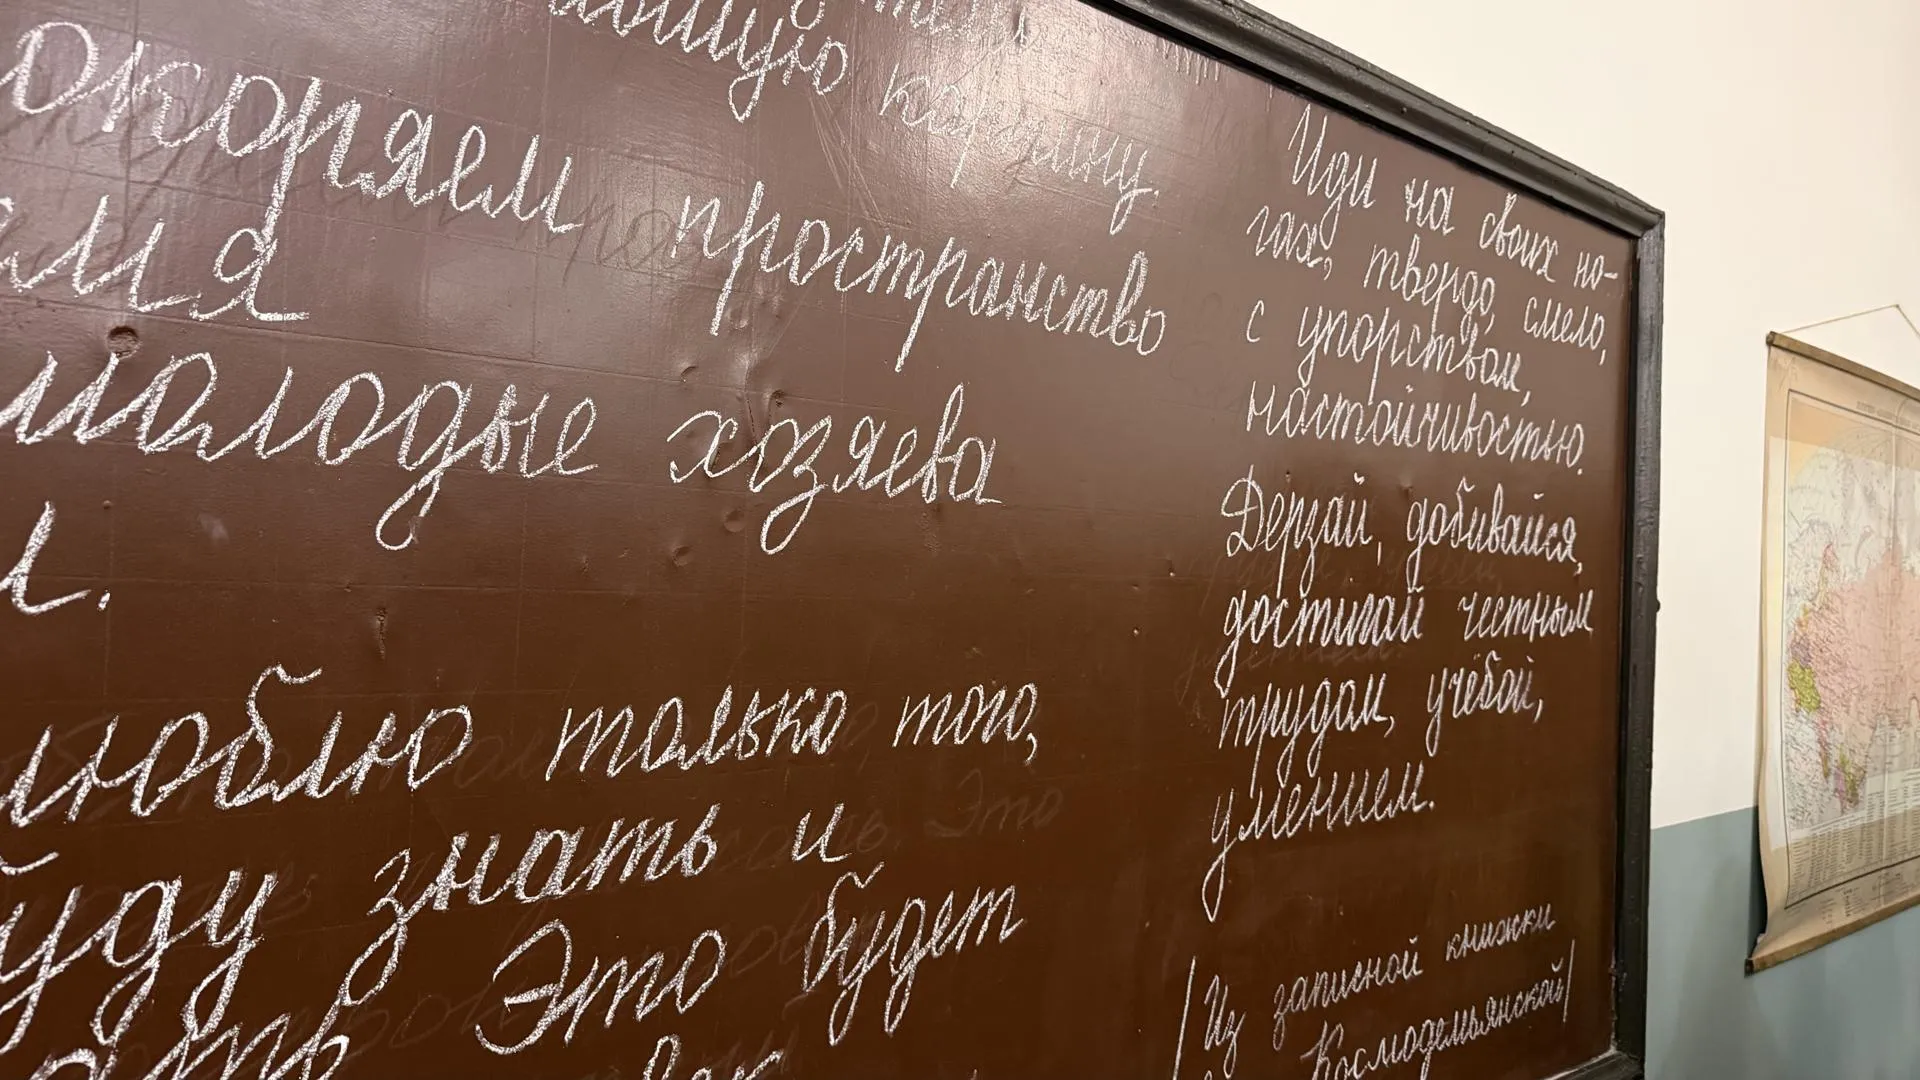 картину.
окоряем пространство
мя
молодые хозяева
люблю только того,
знать и
Это будет
Иди на своих но-
гах, твердо, смело,
с упорством,
настойчивостью.
Дерзай, добивайся,
достигай честным
трудом, учёбой,
умением.
/Из записной книжки
Космодемьянской/